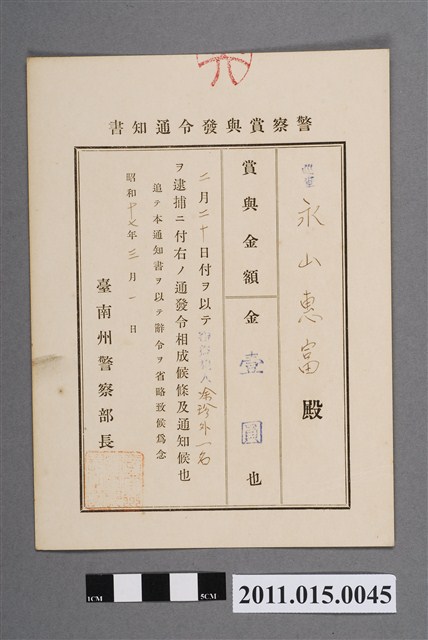 警察賞與發令通知書
永山惠富殿
賞與金額
金壹圓也
二月二十日付ヲ以テ 余珍外一名
ヲ逮捕ニ付右ノ通發令相成候條及通知候也
追テ本通知書ヲ以テ辭令ヲ省略致候爲念
昭和十七年三月一日
臺南州警察部長
1CM
5CM
2011.015.0045